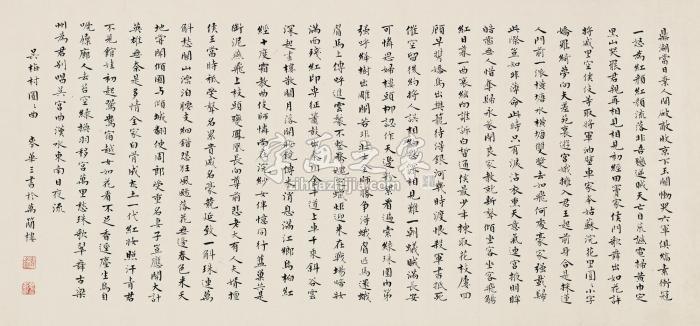 鼎湖當日棄人間破敵收京下玉關慟哭六軍俱縞素衝冠
一怒為紅顏紅顏流落非吾戀逆賊天亡自荒讌電掃黃巾定
黑山哭罷君親再相見相見初經田竇家侯門歌舞出如花許
將戚里空侯伎等取將軍油壁車家本姑蘇浣花里圓圓小字
嬌羅綺夢向夫差苑裏遊宮娥擁入君王起前身合是採蓮
人門前一派橫塘水橫塘雙槳去如飛何處豪家強載歸
此際豈知非薄命此時只有淚沾衣薰天意氣連宮掖明眸
皓齒無人惜奪歸永巷閉良家教就新聲傾坐客坐客飛觴
紅日暮一曲哀絃向誰訴白皙通侯最少年揀取花枝屢回
顧早攜嬌鳥出樊籠待得銀河幾時渡恨殺軍書抵死
催空留後約將人誤相約恩深相見難一朝蟻賊滿長安
可憐思婦樓頭柳認作天邊粉絮看遍索綠珠圍內第
強呼絳樹出雕闌若非壯士全師勝爭得蛾眉匹馬還蛾
眉馬上傳呼進雲鬟不整驚魂定蠟炬迎來在戰場啼妝
滿面殘紅印專征簫鼓向秦川金牛道上車千乘斜谷雲
深起畫樓散關月落開妝鏡傳來消息滿江鄉烏桕紅
經十度霜教曲伎師憐尚在浣紗女伴憶同行舊巢共是
銜泥燕飛上枝頭變鳳凰長向尊前悲老大有人夫婿擅
侯王當時祗受聲名累貴戚名豪競延致一斛珠連萬
斛愁關山漂泊腰支細錯怨狂風颺落花無邊春色來天
地嘗聞傾國與傾城翻使周郎受重名妻子豈應關大計
英雄無奈是多情全家白骨成灰土一代紅妝照汗青君
不見館娃初起鴛鴦宿越女如花看不足香徑塵生鳥自
啼屧廊人去苔空綠換羽移宮萬里愁珠歌翠舞古梁
州為君別唱吳宮曲漢水東南日夜流
吳梅村圓圓曲 麥華三書於萬蘭樓